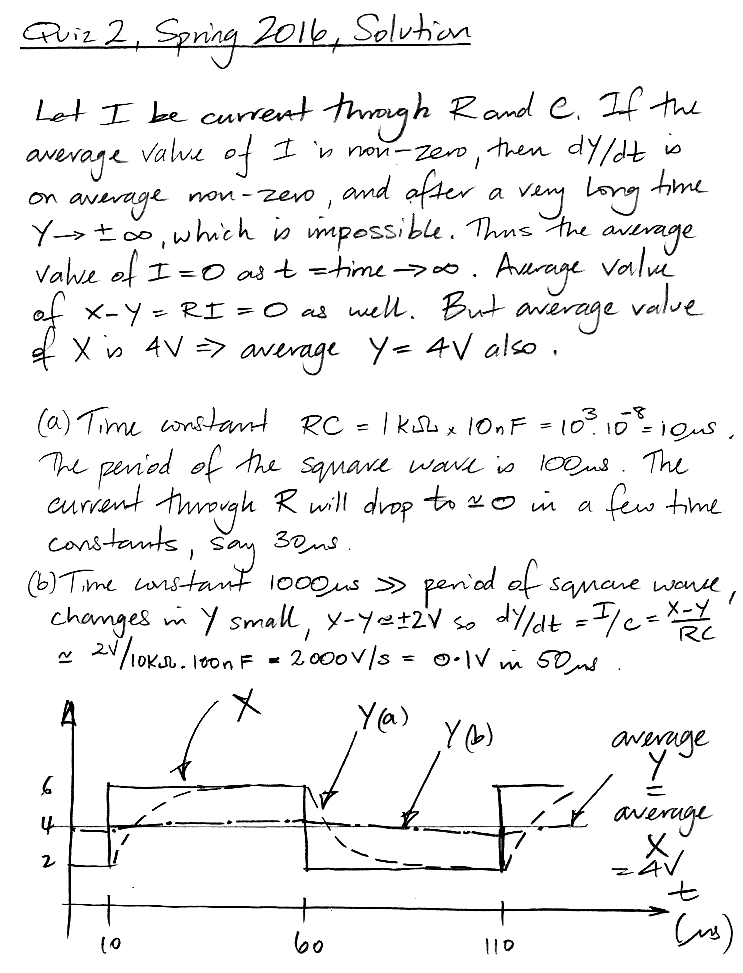 Quiz 2, Spring 2016, Solution
Let I be current through R and C. If the
average value of I is non-zero, then dY/dt is
on average non-zero, and after a very long time
Y → ± ∞, which is impossible. Thus the average
value of I = 0 as t = time → ∞. Average value
of X-Y = RI = 0 as well. But average value
of X is 4V ⇒ average Y = 4V also.
(a) Time constant RC = 1kΩ x 10nF = 10³.10⁻⁸ = 10μs.
The period of the square wave is 100μs. The
current through R will drop to ≃ 0 in a few time
constants, say 30μs.
(b) Time constant 1000μs >> period of square wave,
changes in Y small, X-Y≃±2V so dY/dt = I/C = X-Y/RC
≃ 2V/10KΩ.100nF = 2000V/s = 0.1V in 50μs.
X
Y(a)
Y(b)
average
Y
=
average
X
= 4V
6
4
2
t
(μs)
10
60
110